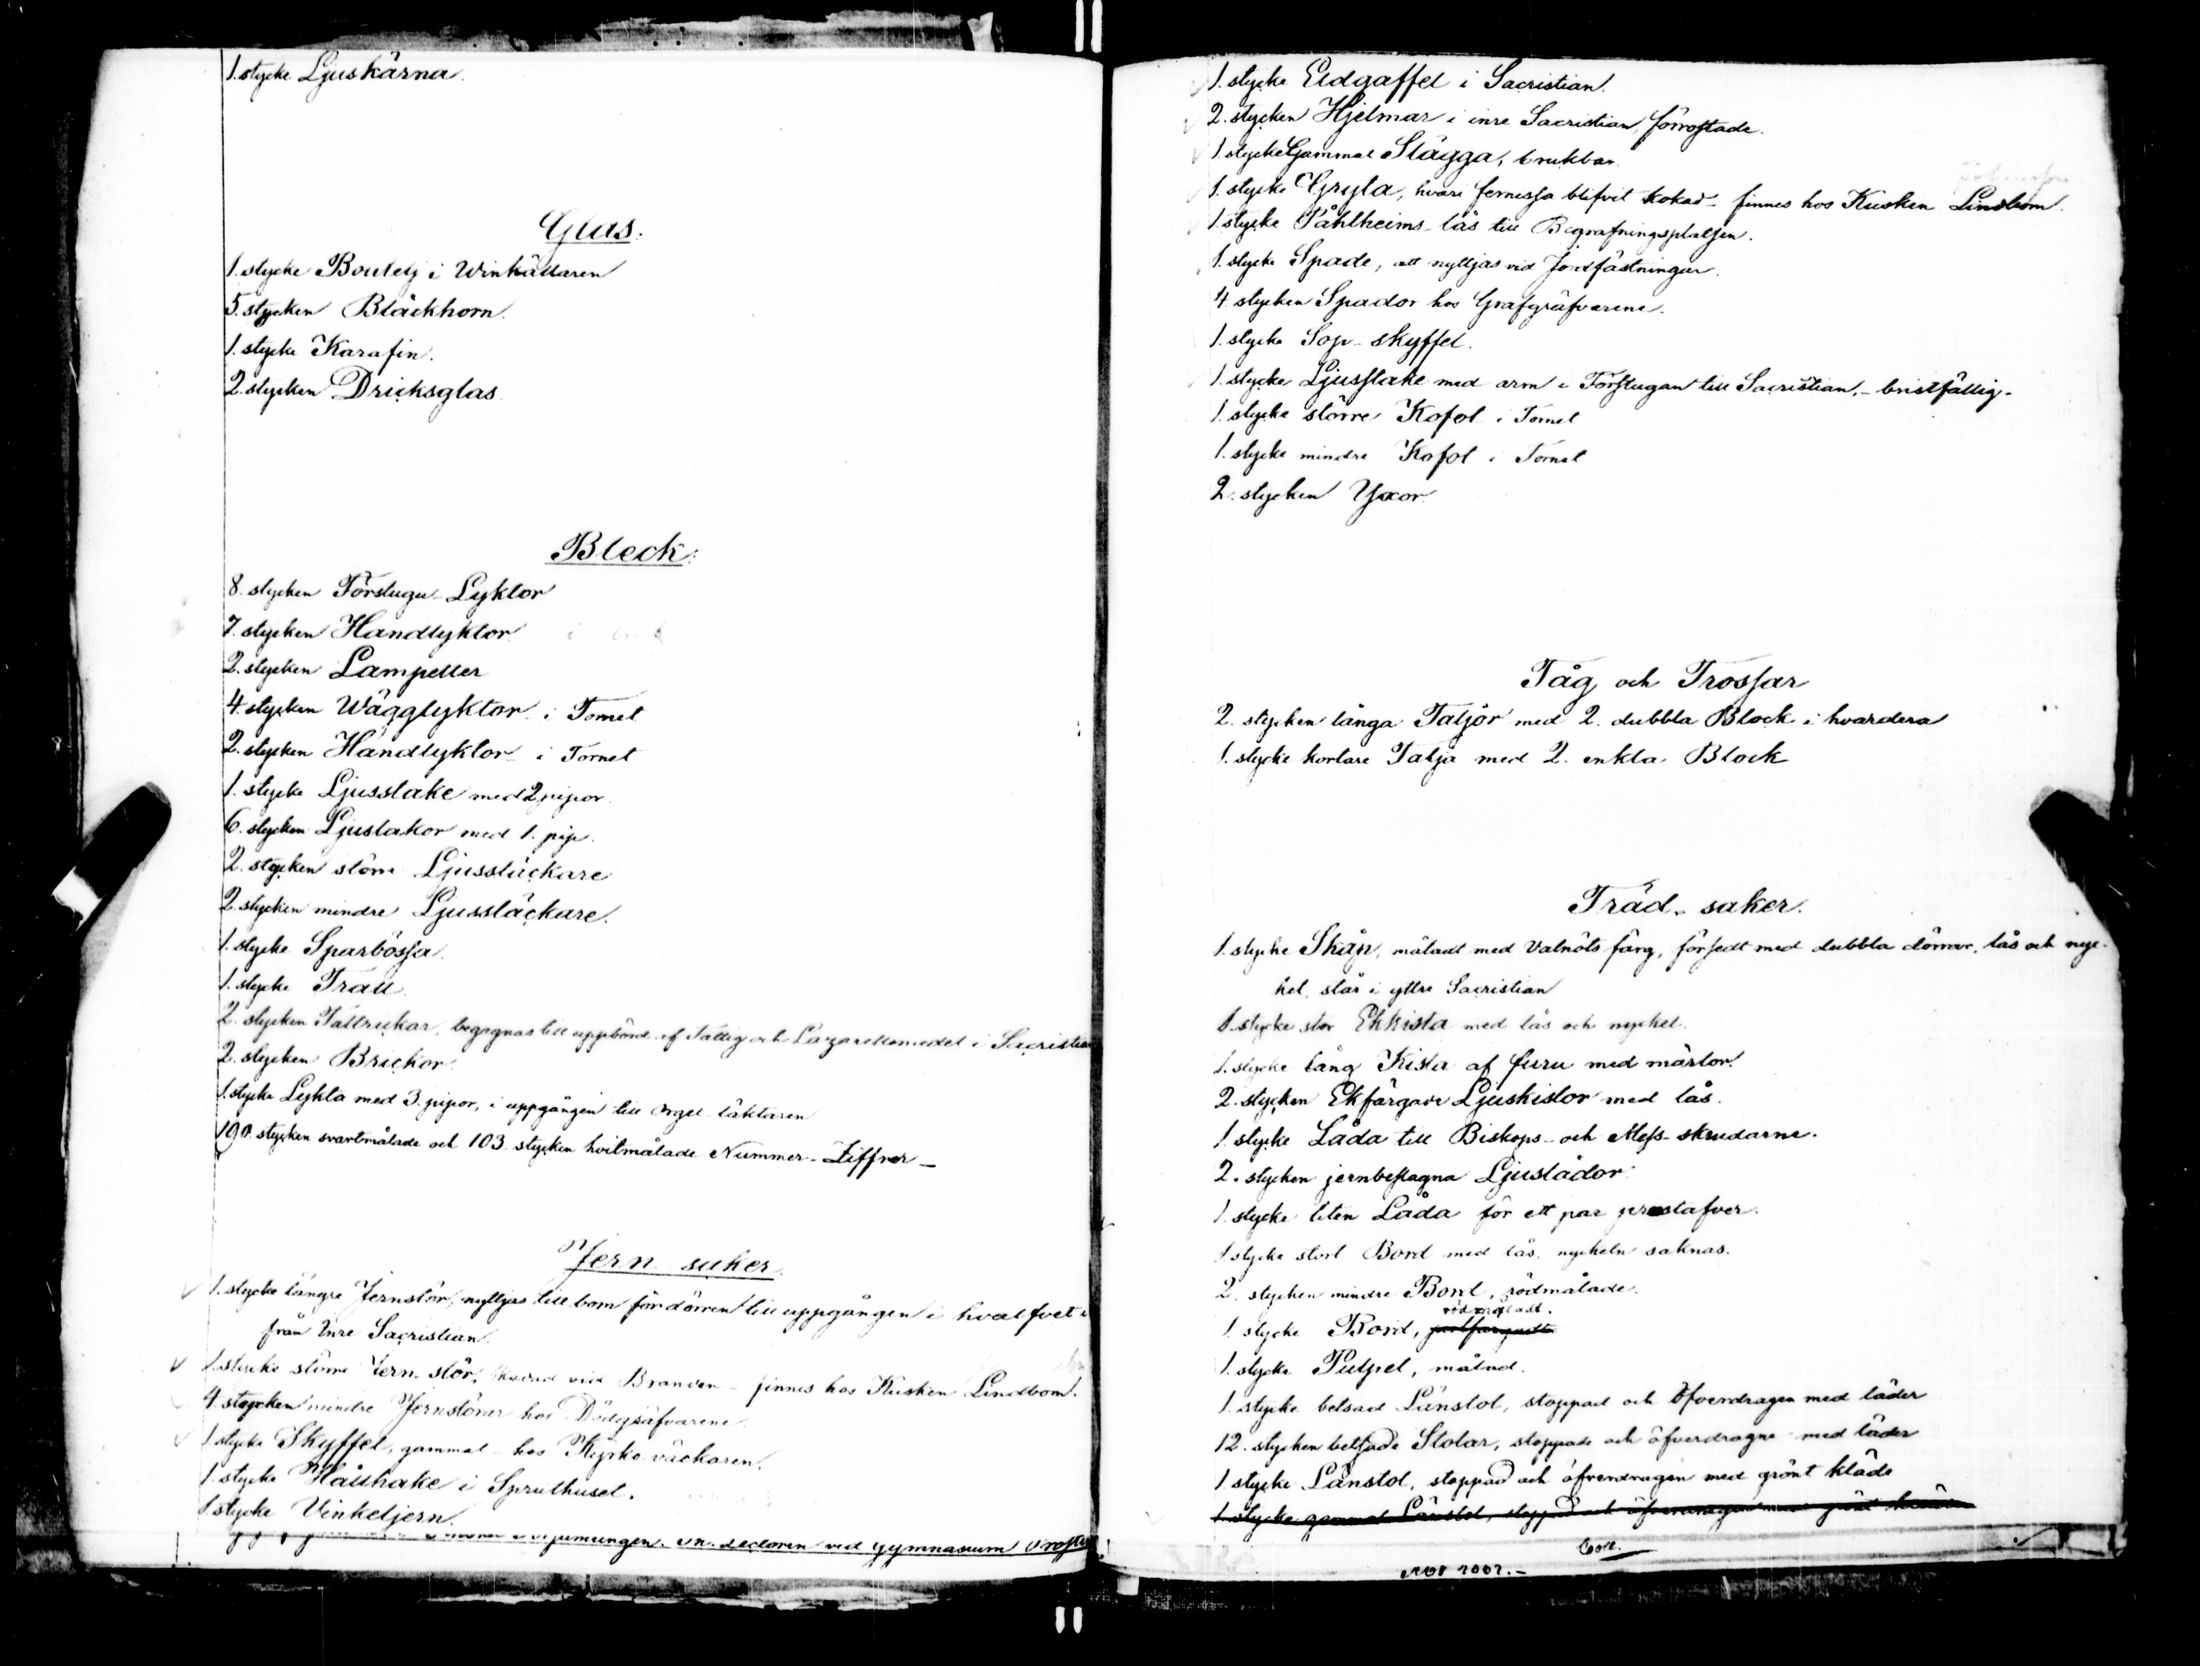 1. stycke Ljuskärna.
Glas.
1. stycke Boutelj i Winkällaren
5. stycken Bläckhorn.
1. stycke Karafin.
2. stycken Dricksglas
Bleck:
8. stycken Förstugu-Lyktor
7. stycken Handlyktor
2. stycken Lampetter
4. stycken Wägglyktor i Tornet
2. stycken Handlyktor i Tornet
1. stycke Ljusstake med 2 pipor
6. stycken Ljustakor med 1. pip.
2. stycken större Ljussläckare
2. stycken mindre Ljussläckare.
1. stycke Sparbössa.
1. stycke Tratt
2. stycken Tallrickar, begagnas till uppbörd af Fattig och Lazarettsmedel i Sacristian
2. stycken Brickor.
1. stycke Lykta med 3. pipor, i uppgången till orgel-läktaren
190. stycken svartmålade och 103. stycken hvitmålade Nummer-Ziffror
Jern saker.
1. stycke längre Jernstör, nyttjas till bom för dörren till uppgången i hvalfvet
från Inre Sacristian.
1. stycke större Jern-stör, skadad vid Branden - finnes hos Kusken Lindbom.
4. stycken mindre Jernstörar hos Dödgräfvarene
1 stycke Skyffel, gammal - hos Kyrko-väckaren.
1. stycke Hållhake i Spruthuset.
1 stycke Vinkeljern.
Lectoren vid Gymnasium
1. stycke Eldgaffel i Sacristian.
2. stycken Hjelmar i inre Sacristian, förrostade.
1 stycke Gammal Slägga, brukbar.
1. stycke Gryta, hvari fernissa blifvit kokad - finnes hos Kusken Lindbom.
1. stycke Påhlheims-lås till Begrafningsplatsen.
1. stycke Spade, att nyttjas vid Jordfästningar.
4 stycken Spador hos Grafgräfvarene.
1. stycke Sop-skyffel.
1. stycke Ljusstake med arm i Förstugan till Sacristian, - bristfällig.
1. stycke större Kofot i Tornet
1. stycke mindre Kofot i Tornet
2. stycken Yxor.
Tåg och Trossar
2. stycken långa Taljor med 2. dubbla Block i hvardera
1. stycke kortare Talja med 2. enkla Block
Träd-saker.
1. stycke Skåp, måladt med Valnöts färg, försedt med dubbla dörrar, lås och nyc-
kel, står i yttre Sacristian
1. stycke stor Ekkista med lås och nyckel.
1. stycke lång Kista af furu med märlor.
2. stycken Ekfärgade Ljuskistor med lås.
1. stycke Låda till Biskops- och Mess-skrudarne.
2. stycken jernbeslagna Ljuslådor
1. stycke liten Låda för ett par prestafver.
1 stycke stort Bord med lås, nyckeln saknas.
2. stycken mindre Bord, rödmålade.
rödmåladt.
1. stycke Bord,
1. stycke Pulpet, målad.
1. stycke betsad Länstol, stoppad och öfverdragen med läder
12. stycken betsade Stolar, stoppade och öfverdragne med läder
1 stycke Länstol, stoppad och öfverdragen med grönt kläde
1. stycke gammal Länstol, stoppad och öfverdragen med